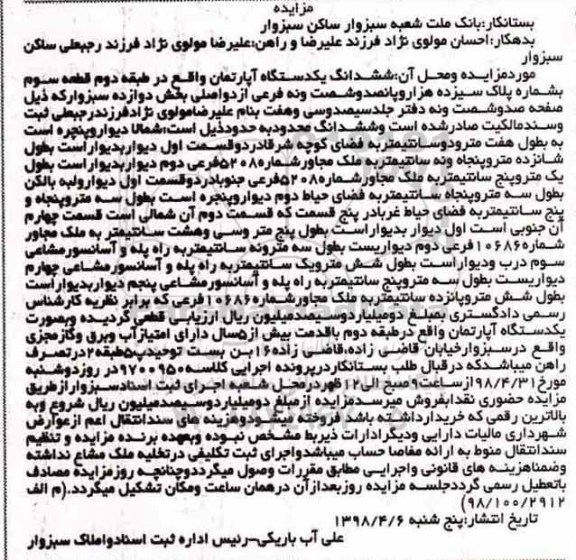 مزایده
بستانکار:بانک ملت شعبه سبزوار ساکن سبزوار
بدهکار:احسان مولوی نژاد فرزند علیرضا و راهن:علیرضا مولوی نژاد فرزند رجبعلی ساکن
سبزوار
موردمزایده ومحل آن:ششدانگ یکدستگاه آپارتمان واقع در طبقه دوم قطعه سوم
بشماره پلاک سیزده هزاروپانصدوشصت ونه فرعی ازدواصلی بخش دوازده سبزوارکه ذیل
صفحه صدوشصت ونه دفتر جلدسیصدوسی وهفت بنام علیرضامولوی نژادفرزندرجبعلی ثبت
وسندمالکیت صادرشده است وششدانگ محدودبه حدودذیل است:شمالا دیواروپنجره است
به طول هفت مترودوسانتیمتربه فضای کوچه شرقادردوقسمت اول دیواربدیواراست بطول
شانزده متروپنجاه ونه سانتیمتربه ملک مجاورشماره۵۲۰۸فرعی دوم دیواربدیواراست بطول
یک متروپنج سانتیمتر به ملک مجاورشماره۵۲۰۸فرعی جنوبادردوقسمت اول دیوارولبه بالکن
بطول سه متروپنجاه سانتیمتربه فضای حیاط دوم دیواروپنجره است بطول سه متروپنجاه و
پنج سانتیمتربه فضای حیاط غربادر پنج قسمت که قسمت دوم آن شمالی است قسمت چهارم
آن جنوبی است اول دیوار بدیواراست بطول پنج متر وسی وهشت سانتیمتر به ملک مجاور
شماره۱۰۶۸۶فرعی دوم دیواریست بطول سه مترونه سانتیمتربه راه پله و آسانسورمشاعی
سوم درب ودیواراست بطول شش مترویک سانتیمتربه راه پله و آسانسورمشاعی چهارم
دیواریست بطول سه متروپنج سانتیمتربه راه پله و آسانسورمشاعی پنجم دیواربدیواراست
بطول شش متروپانزده سانتیمتربه ملک مجاورشماره۱۰۶۸۶فرعی که برابر نظریه کارشناس
رسمی دادگستری بمبلغ دومیلیاردوسیصدمیلیون ریال ارزیابی قطعی گردیده وبصورت
یکدستگاه آپارتمان واقع درطبقه دوم باقدمت بیش از۵سال دارای امتیازآب وبرق وگازمجزی
واقع درسبزوارخیابان قاضی زاده،قاضی زاده۱۶بن بست توحیدپ۵طبقه۲درتصرف
راهن میباشدکه درقبال طلب بستانکاردرپرونده اجرایی کلاسه۹۷۰۰۹۵۰در روزدوشنبه
مورخ۹۸/۴/۳۱ازساعت۹صبح الی۱۲ظهردرمحل شعبه اجرای ثبت اسنادسبزوارازطریق
مزایده حضوری نقدابفروش میرسدمزایده ازمبلغ دومیلیاردوسیصدمیلیون ریال شروع وبه
بالاترین رقمی که خریدارداشته باشد فروخته میشودوهزینه های سندانتقال اعم ازعوارض
شهرداری مالیات دارایی ودیگرادارات ذیربط مشخص نبوده وبعهده برنده مزایده و تنظیم
سندانتقال منوط به ارائه مفاصا حساب میباشدواجرای ثبت تکلیفی درتخلیه ملک مشاع نداشته
وضمناهزینه های قانونی واجرایی مطابق مقررات وصول میگرددوچنانچه روزمزایده مصادف
باتعطیل رسمی گرددجلسه مزایده روزبعدازآن درهمان ساعت ومکان تشکیل میگردد.(م الف
۹۸/۱۰۰/۲۹۱۲)
تاریخ انتشار:پنج شنبه ۱۳۹۸/۴/۶
علی آب باریکی-رئیس اداره ثبت اسنادواملاک سبزوار